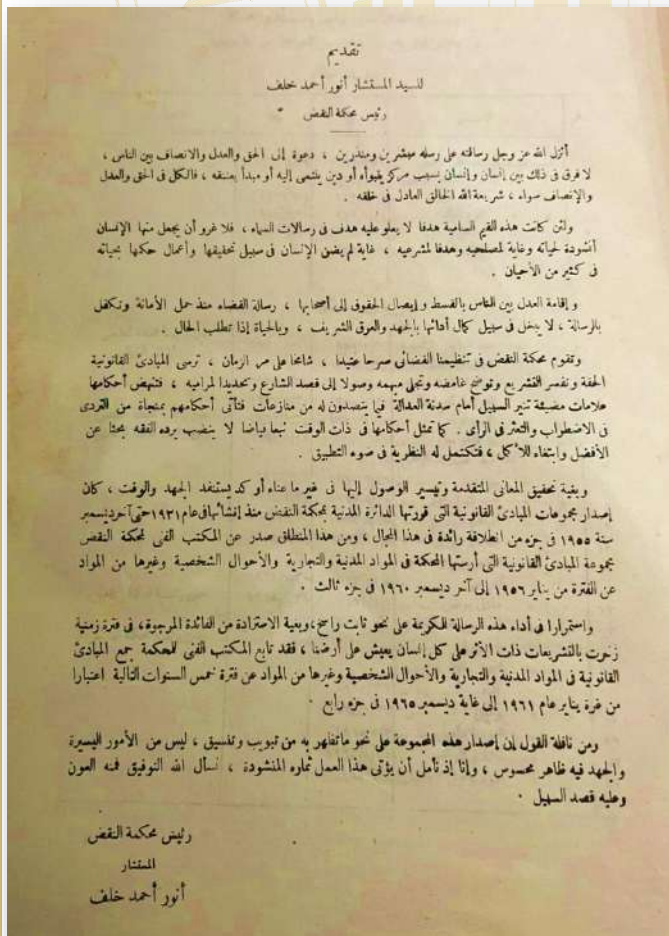 تقديم
للسيد المستشار أنور أحمد خلف
رئيس محكمة النقض
أنزل الله عز وجل رسالته على رسله مبشرين ومنذرين ، دعوة إلى الحق والعدل والانصاف بين الناس ،
لا فرق فى ذلك بين إنسان وإنسان بسبب مركز يتبوأه أو دين ينتمى إليه أو مبدأ يعتنقه ، فالكل فى الحق والعدل
والإنصاف سواء ، شريعة الله الخالق العادل فى خلقه .
ولئن كانت هذه القيم السامية هدفا لا يعلو عليه هدف فى رسالات السماء ، فلا غرو أن يجعل منها الإنسان
أنشودة لحياته وغاية لمصلحيه وهدفا لمشرعيه ، غاية لم يضن الإنسان فى سبيل تحقيقها وأعمال حكمها بحياته
فى كثير من الأحيان .
و إقامة العدل بين الناس بالقسط و إيصال الحقوق إلى أصحابها ، رسالة القضاء منذ حمل الأمانة وتكفل
بالرسالة ، لا يبخل فى سبيل كمال أدائها بالجهد والعرق الشريف ، وبالحياة إذا تطلب الحال .
وتقوم محكمة النقض فى تنظيمنا القضائى صرحا عتيدا ، شامخا على مر الزمان ، ترسى المبادئ القانونية
الحقة وتفسر التشريع وتوضح غامضه وتجلى مبهمه وصولا إلى قصد الشارع وتحديدا لمراميه ، فتنهض أحكامها
علامات مضيئة تنير السبيل أمام سدنة العدالة فيما يتصدون له من منازعات فتأتى أحكامهم بمنجاة من التردى
فى الاضطراب والتعثر فى الرأى . كما تمثل أحكامها فى ذات الوقت نبعا فياضا لا ينضب يرده الفقه بحثا عن
الأفضل وابتغاء للأكمل ، فتكتمل له النظرية فى ضوء التطبيق .
وبغية تحقيق المعانى المتقدمة وتيسير الوصول إليها فى غير ما عناء أو كد يستنفد الجهد والوقت ، كان
إصدار مجموعات المبادئ القانونية التى قررتها الدائرة المدنية بمحكمة النقض منذ إنشائها فى عام ١٩٣١ حتى آخر ديسمبر
سنة ١٩٥٥ فى جزءمن انطلاقة رائدة فى هذا المجال ، ومن هذا المنطلق صدر عن المكتب الفنى لمحكمة النقض
مجموعة المبادئ القانونية التى أرستها المحكمة فى المواد المدنية والتجارية والأحوال الشخصية وغيرها من المواد
عن الفترة من يناير ١٩٥٦ إلى آخر ديسمبر ١٩٦٠ فى جزء ثالث .
واستمرارا فى أداء هذه الرسالة الكريمة على نحو ثابت راسخ ،وبغية الاستزادة من الفائدة المرجوة، فى فترة زمنية
زخرت بالتشريعات ذات الأثر على كل إنسان يعيش على أرضنا ، فقد تابع المكتب الفنى للمحكمة جمع المبادئ
القانونية فى المواد المدنية والتجارية والأحوال الشخصية وغيرها من المواد عن فترة خمس السنوات التالية اعتبارا
من غرة يناير عام ١٩٦١ إلى غاية ديسمبر ١٩٦٥ فى جزء رابع .
ومن نافلة القول إن إصدار هذه المجموعة على نحو ماتظهر به من تبويب وتنسيق ، ليس من الأمور اليسيرة
والجهد فيه ظاهر محسوس ، وإنا إذ نأمل أن يؤتى هذا العمل ثماره المنشودة ، نسأل الله التوفيق فمنه العون
وعليه قصد السبيل .
رئيس محكمة النقض
المستشار
أنور أحمد خلف